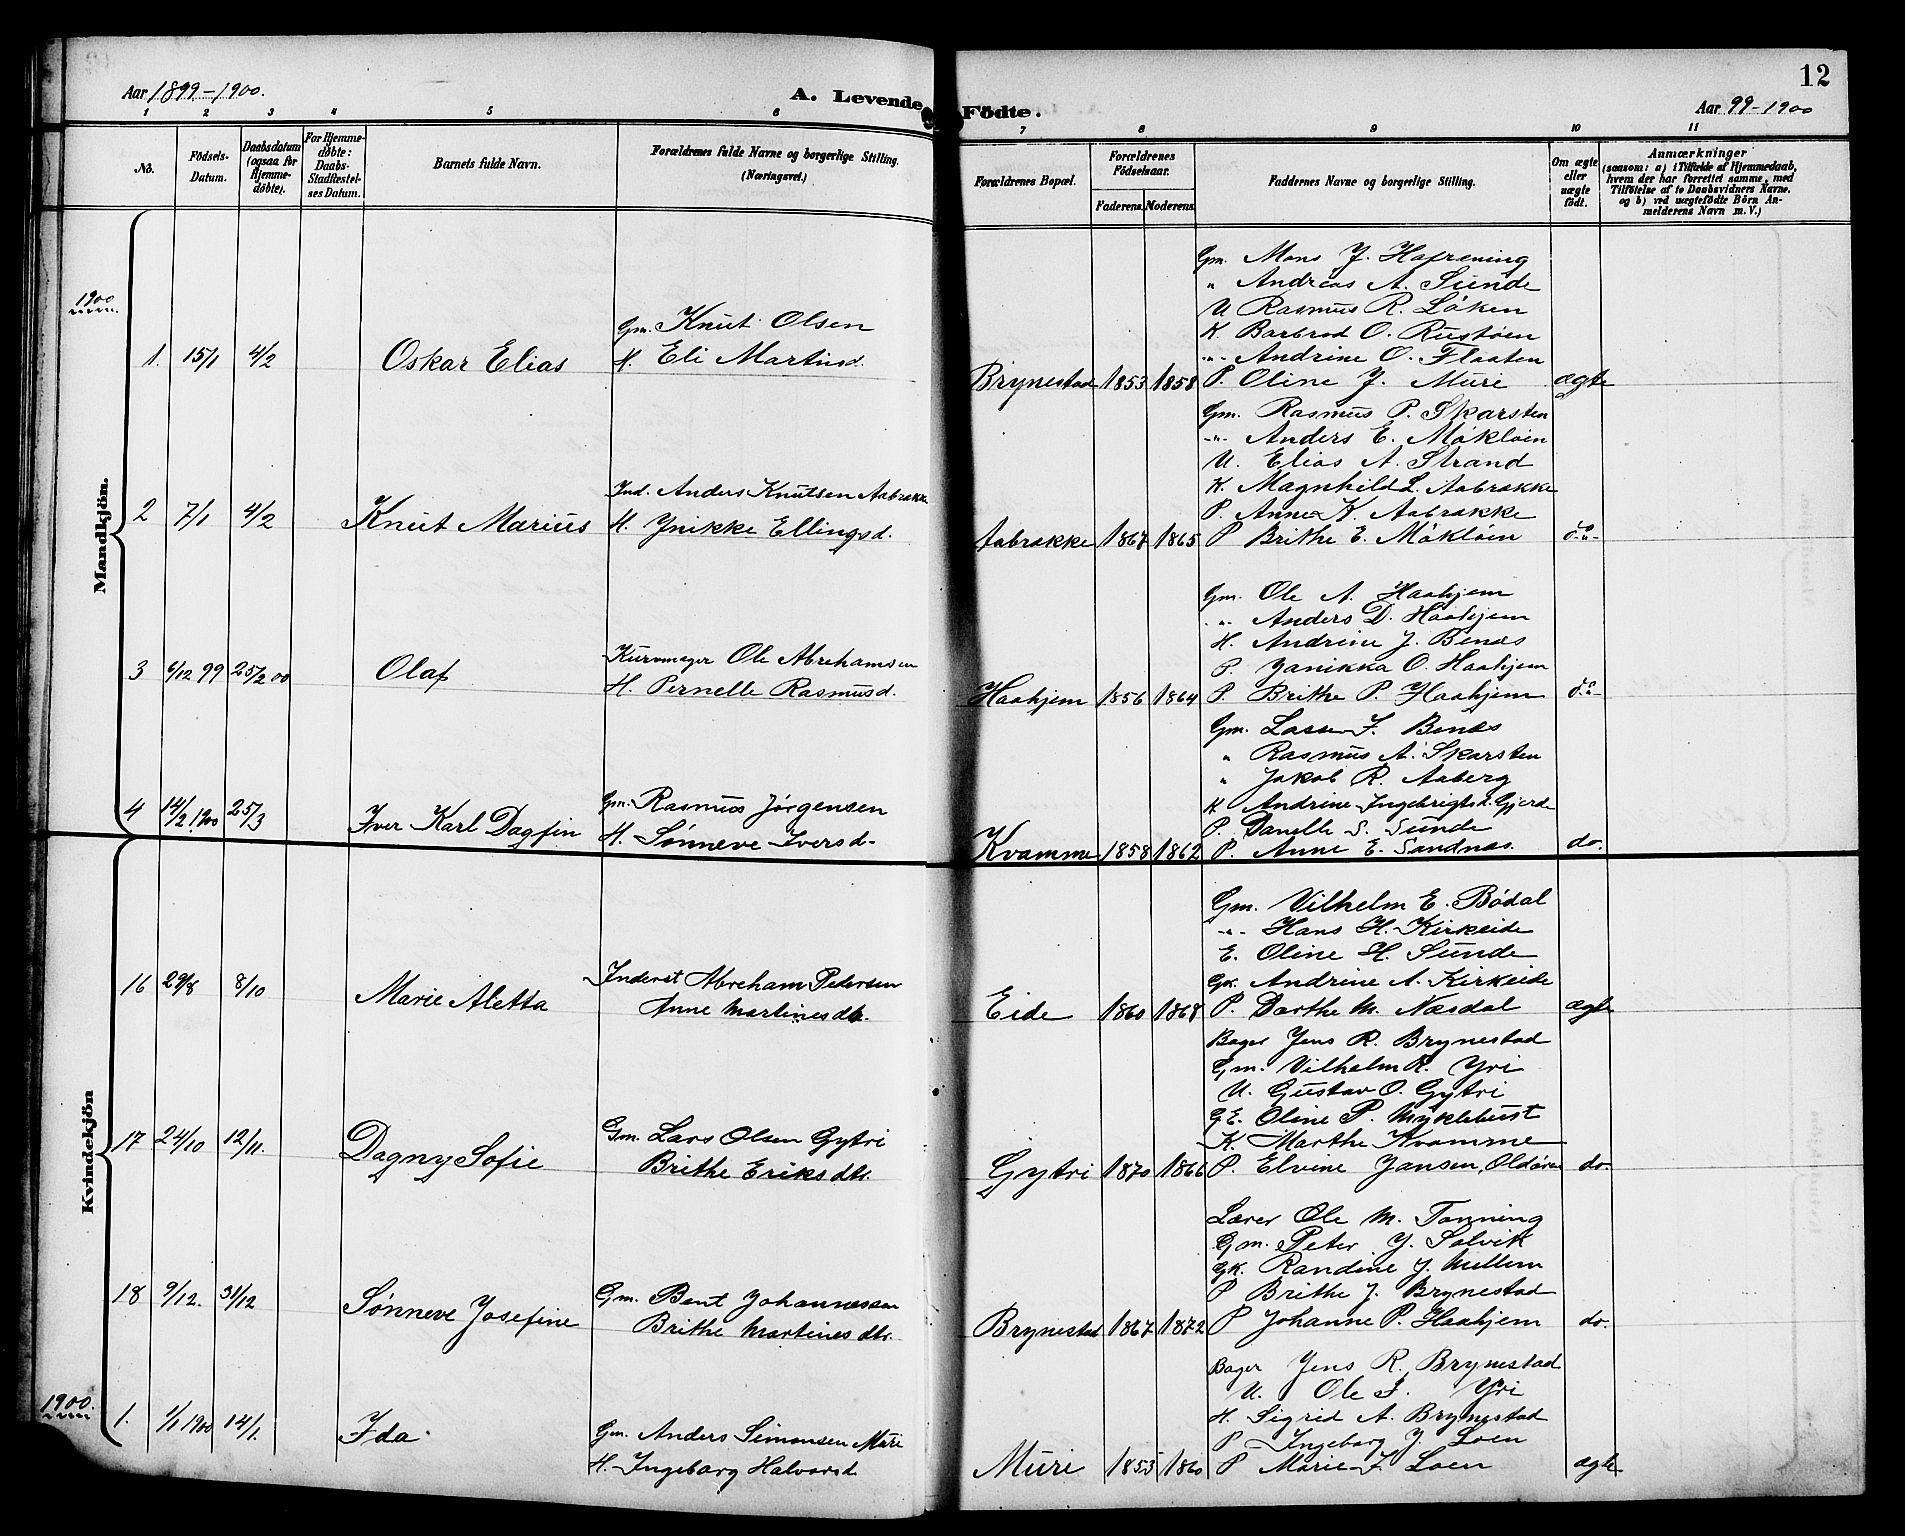 Aar 1899-1900.
A. Levende
Födte.
12
Aar 99-1900
1 2 3 4 5 6 7 8 9 10 11
No.
Födsels-
Datum.
Daabsdatum
(ogsaa for
Hjemme-
döbte).
For Hjemme-
døbte:
Daabs-
Stadfestel-
ses Datum.
Barnets fulde Navn.
Forældrenes fulde Navne og borgerlige Stilling.
(Næringsvei.)
Forældrenes Bopæl.
Forældrenes
Födselsaar.
Faderens. Moderens.
Faddernes Navne og borgerlige Stilling.
Om ægte
eller
uægte
født.
Anmærkninger
(saasom: a) i Tilfælde af Hjemmedaab,
hvem der har forrettet samme, med
Tilföielse af to Daabsvidners Navne.
og b) ved uægtefödte Börn An-
melderens Navn m.V.)
Mandkjön.
1900
1. 15/1 4/2 Oskar Elias
Gm. Knut Olsen
H. Eli Martinsd.
Brynestad 1853 1858
Gm. Mons J. Hafrening
" Andreas A. Sunde
U Rasmus R. Löken
K Barbrod O. Rustöen
-"- Andrine O. Flaaten
P. Oline J. Muri ægte
2 7/1 4/2 Knut Marius
Ind. Anders Knutsen Aabrække
H. Ynikke Ellingsd.
Aabrække 1867 1865
Gm. Rasmus P. Skarsten
-"- Anders E. Mökløen
U. Elias A. Strand
K. Magnhild L. Aabrække
P. Anne K. Aabrække
P Brithe E. Mökløen do
3 6/12 99 25/2 00 Olaf
Kurvmager Ole Abrehamsen
H. Pernelle Rasmusd.
Haahjem 1856 1864
Gm. Ole A. Haahjem
-"- Anders D. Haahjem
H. Andrine J. Benæs
P. Janikka O. Haahjem
P. Brithe P. Haahjem do
4 14/2 1900 25/3 Iver Karl Dagfin
Gm. Rasmus Jörgensen
H. Sønneve Iversd.
Kvamme 1858 1862
Gm. Lasse J. Benæs
" Rasmus A. Skarsten
" Jakob R. Aaberg
K. Andrine Ingebrigtsd. Gjerde
P. Danelle S. Sunde
P. Anne E. Sandnæs. do.
Kvindekjön
16 29/8 8/10 Marie Aletta
Inderst Abreham Petersen
Anne Martinesdtr.
Eide 1860 1868
Gm. Vilhelm E. Bödal
-"- Hans H. Kirkeide
E. Oline H. Sunde
Gk. Andrine A. Kirkeide
P. Dorthe M. Næsdal ægte
17 24/10 12/11. Dagny Sofie
Gm. Lars Olsen Gytri
Brithe Eriksdtr.
Gytri 1870 1866
Bager Jens R. Brynestad
Gm. Vilhelm R. Yri
U. Gustav O. Gytri
GE. Oline P. Myklebust
K. Marthe Kvamme
P. Elvine Jansen, Oldören do.
18 9/12. 31/12 Sønneve Josefine
Gm. Bent Johannessen
Brithe Martinesdtr.
Brynestad 1867 1872
Lærer Ole M. Tonning
Gm. Peter J. Solvik
Gk. Randine J. Mellem
P Brithe J. Brynestad
P Johanne P. Haahjem do.
1900.
1. 1/1 1900 14/1. Ida
Gm. Anders Simonsen Muri
H. Ingeborg Halvorsd
Muri 1853 1860
Bager Jens R. Brynestad
U. Ole J. Yri
H. Sigrid A. Brynestad
P. Ingeborg J. Loen
P Marie J. Loen ægte